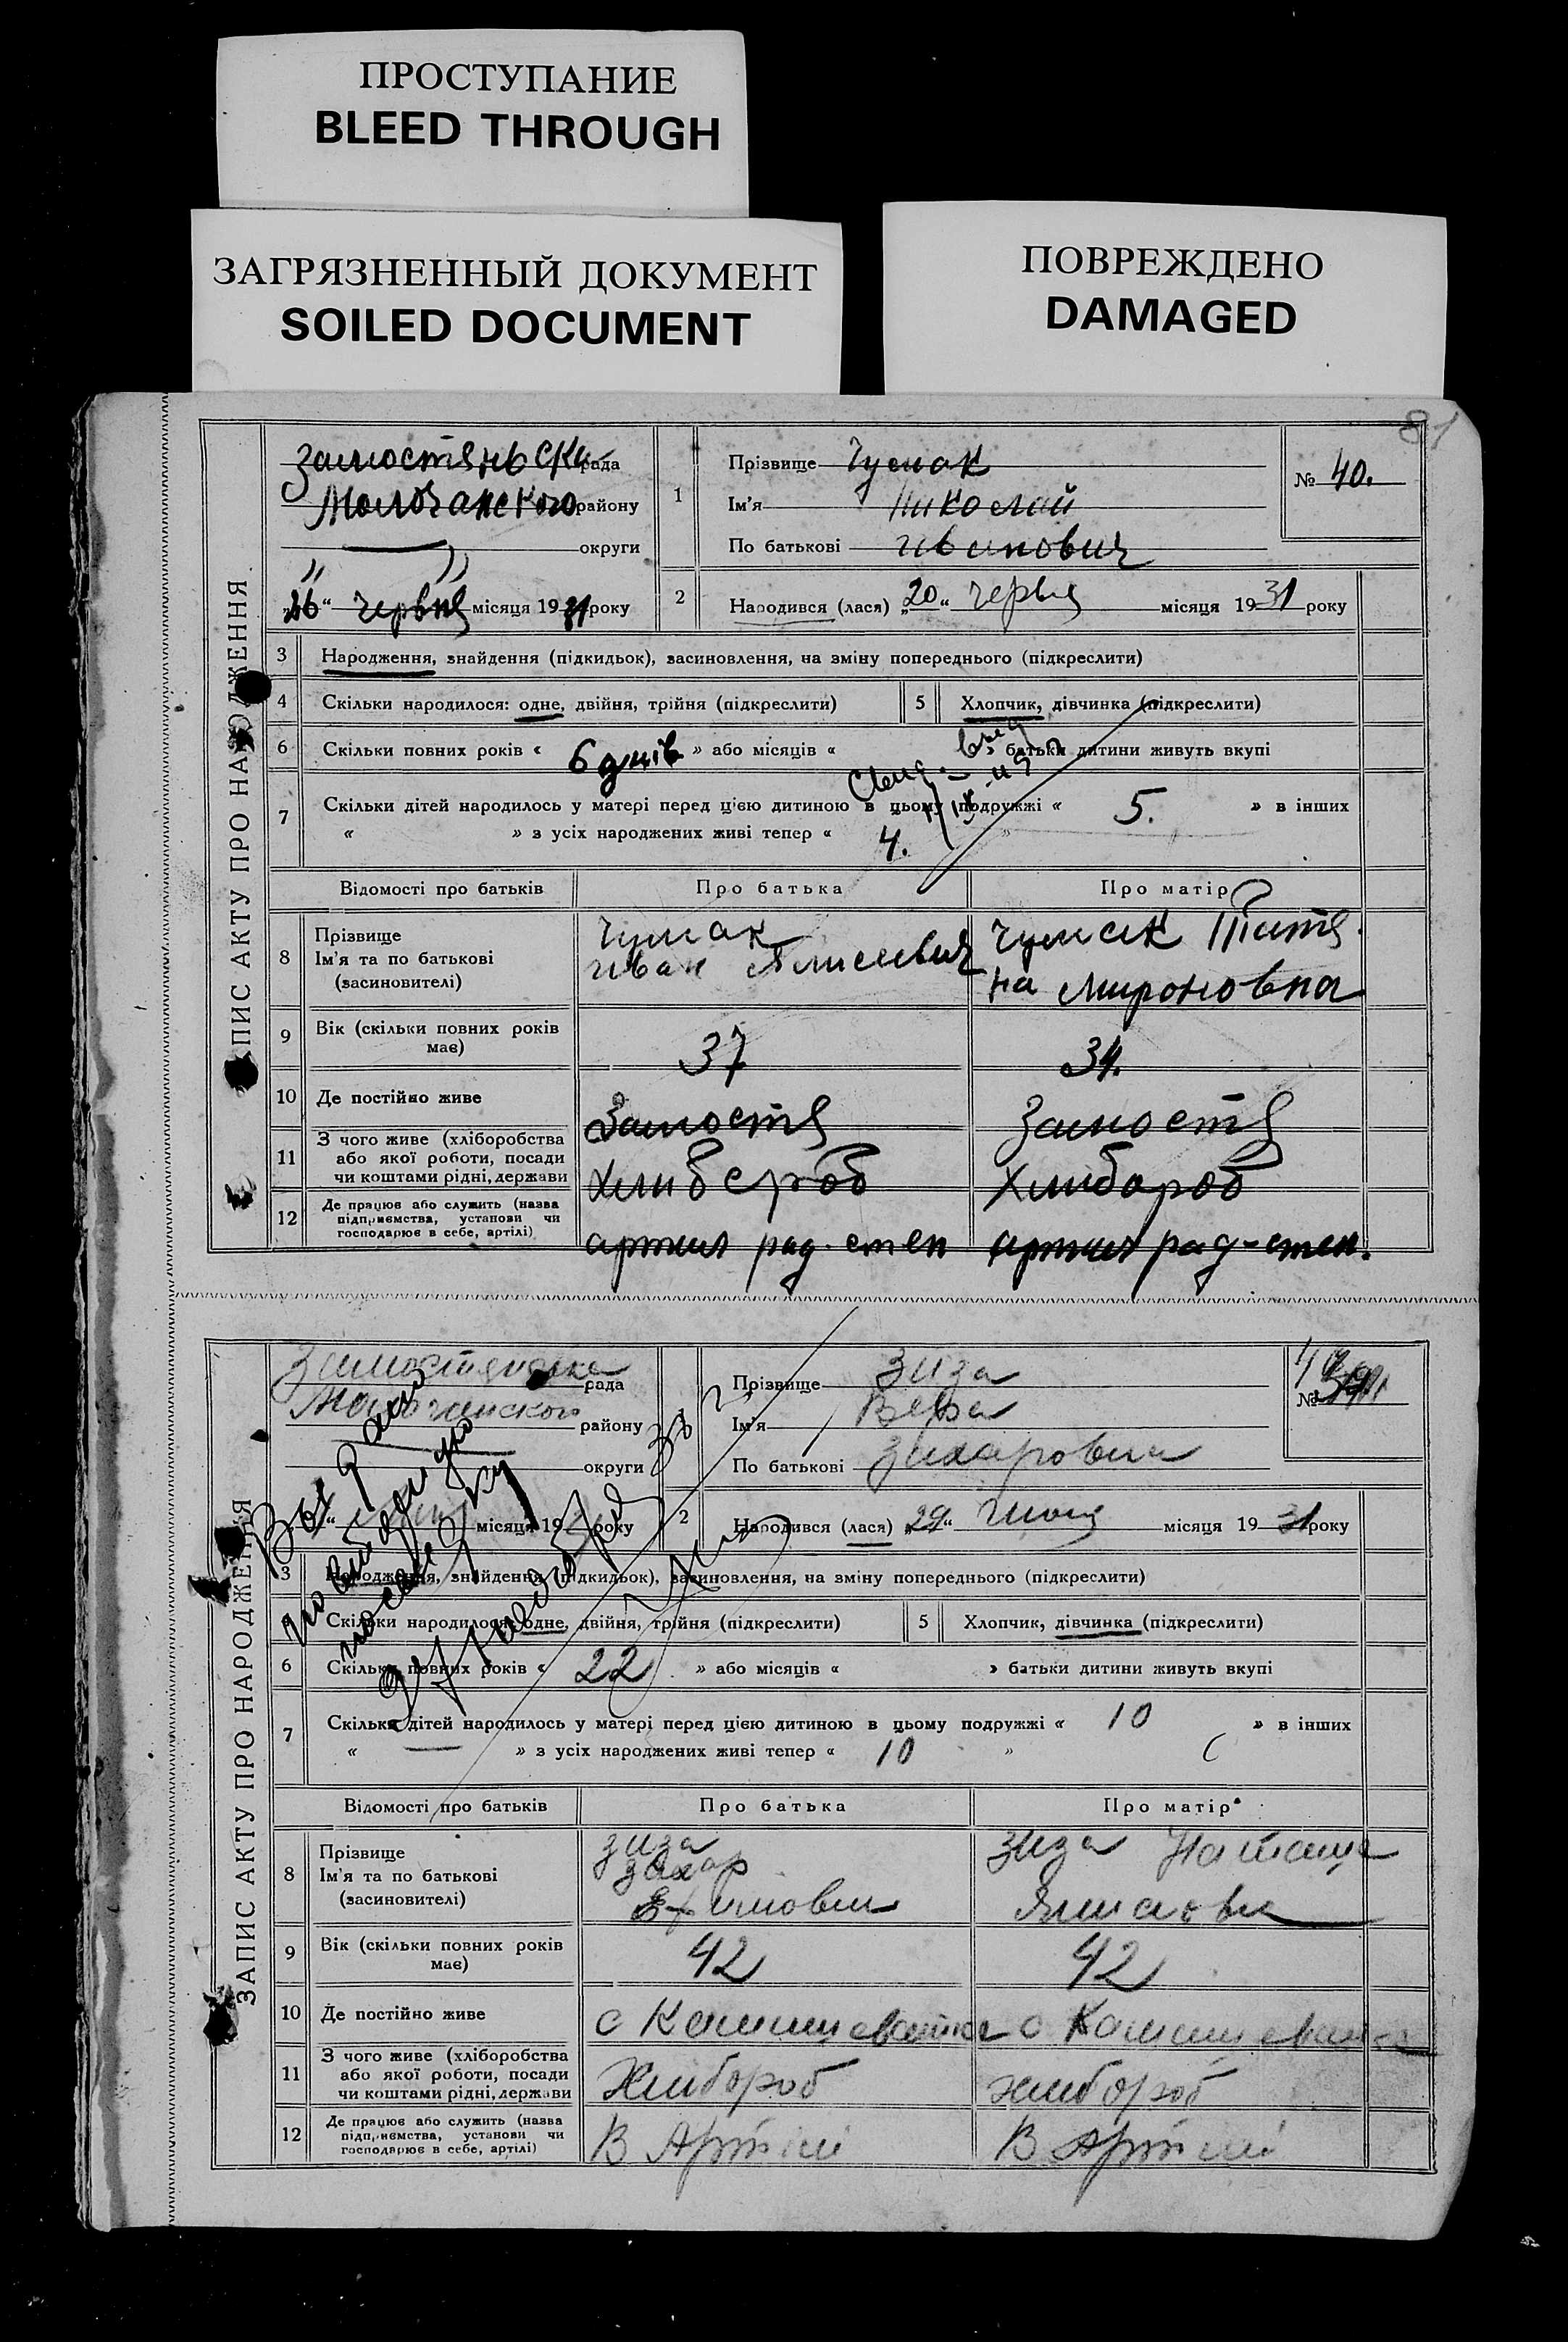 ПРОСТУПАНИЕ
BLEED THROUGH
ЗАГРЯЗНЕННЫЙ ДОКУМЕНТ
SOILED DOCUMENT
ПОВРЕЖДЕНО
DAMAGED
81
ПИС АКТУ ПРО НАРОДЖЕННЯ
Замостяньска рада
Молочанского району
округи
„26“ червня місяця 1931 року
1
Прізвище Чумак
Ім'я Николай
По батькові Иванович
№ 40.
2
Народився (лася) „20“ червня місяця 1931 року
3 Народження, знайдення (підкидьок), засиновлення, на зміну попереднього (підкреслити)
4 Скільки народилося: одне, двійня, трійня (підкреслити)
5 Хлопчик, дівчинка (підкреслити)
6 Скільки повних років « 6 днів » або місяців « » батьки дитини живуть вкупі
7 Скільки дітей народилось у матері перед цією дитиною в цьому подружжі « 5. » в інших
« » з усіх народжених живі тепер « 4. »
Відомості про батьків Про батька Про матір
8 Прізвище
Ім'я та по батькові
(засиновителі)
Чумак
Иван
Чумак Титя
на Мироновна
9 Вік (скільки повних років
має)
37
34.
10 Де постійно живе Замостя Замостя
11 З чого живе (хліборобства
або якої роботи, посади
чи коштами рідні, держави
хлибороб
Хлибороб
12 Де працює або служить (назва
підприємства, установи чи
господарює в себе, артілі)
артил рад. степ
артил рад-степ.
ЗАПИС АКТУ ПРО НАРОДЖЕННЯ
Замостянска рада
Молочанского району
округи
місяця 19 року
Прізвище Зиза
Ім'я Вера
По батькові Захаровна
№
2
Народився (лася) „29“ місяця 1931 року
3 Народження, знайдення (підкидьок), засиновлення, на зміну попереднього (підкреслити)
Скільки народилося: одне, двійня, трійня (підкреслити)
5 Хлопчик, дівчинка (підкреслити)
6 Скільки повних років « 22 » або місяців « » батьки дитини живуть вкупі
7 Скільки дітей народилось у матері перед цією дитиною в цьому подружжі « 10 » в інших
« — » з усіх народжених живі тепер « 10 »
Відомості про батьків Про батька Про матір
8 Прізвище
Ім'я та по батькові
(засиновителі)
Зиза
Захар
Зиза
9 Вік (скільки повних років
має)
42
42
10 Де постійно живе
11 З чого живе (хліборобства
або якої роботи, посади
чи коштами рідні, держави
Хлибороб
хлибороб
12 Де працює або служить (назва
підприємства, установи чи
господарює в себе, артілі)
В Артілі
В Артілі